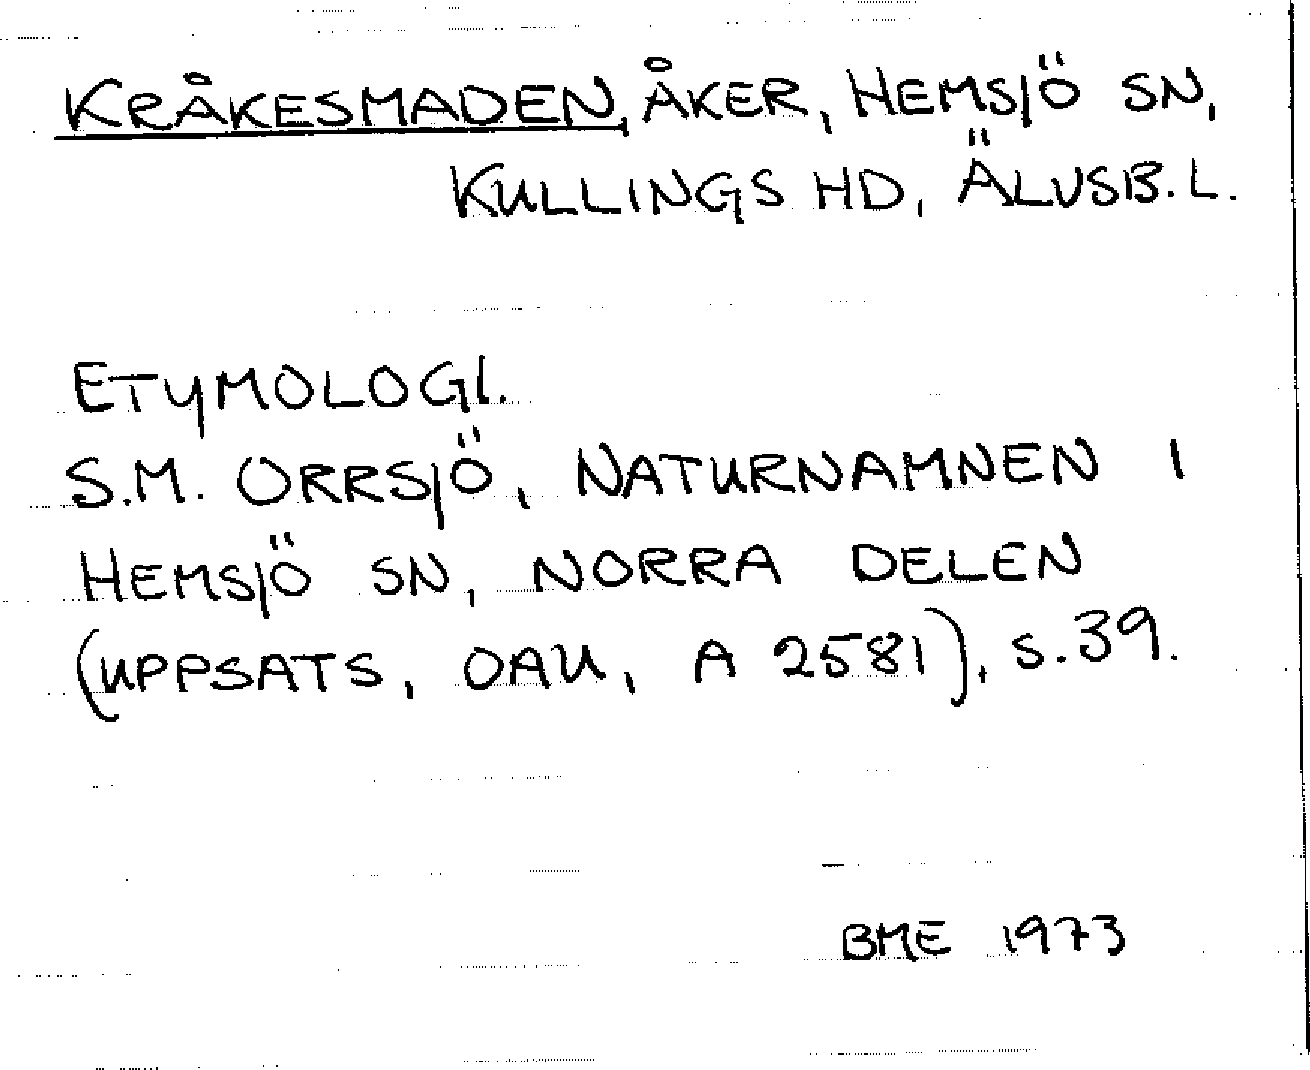 KRÅKESMADEN, ÅKER, HEMSJÖ SN,
KULLINGS HD, ÄLVSB. L.
ETYMOLOGI.
S.M. ORRSJÖ, NATURNAMNEN I
HEMSJÖ SN, NORRA DELEN
(UPPSATS, OAU, A 2581), S. 39.
BME 1973